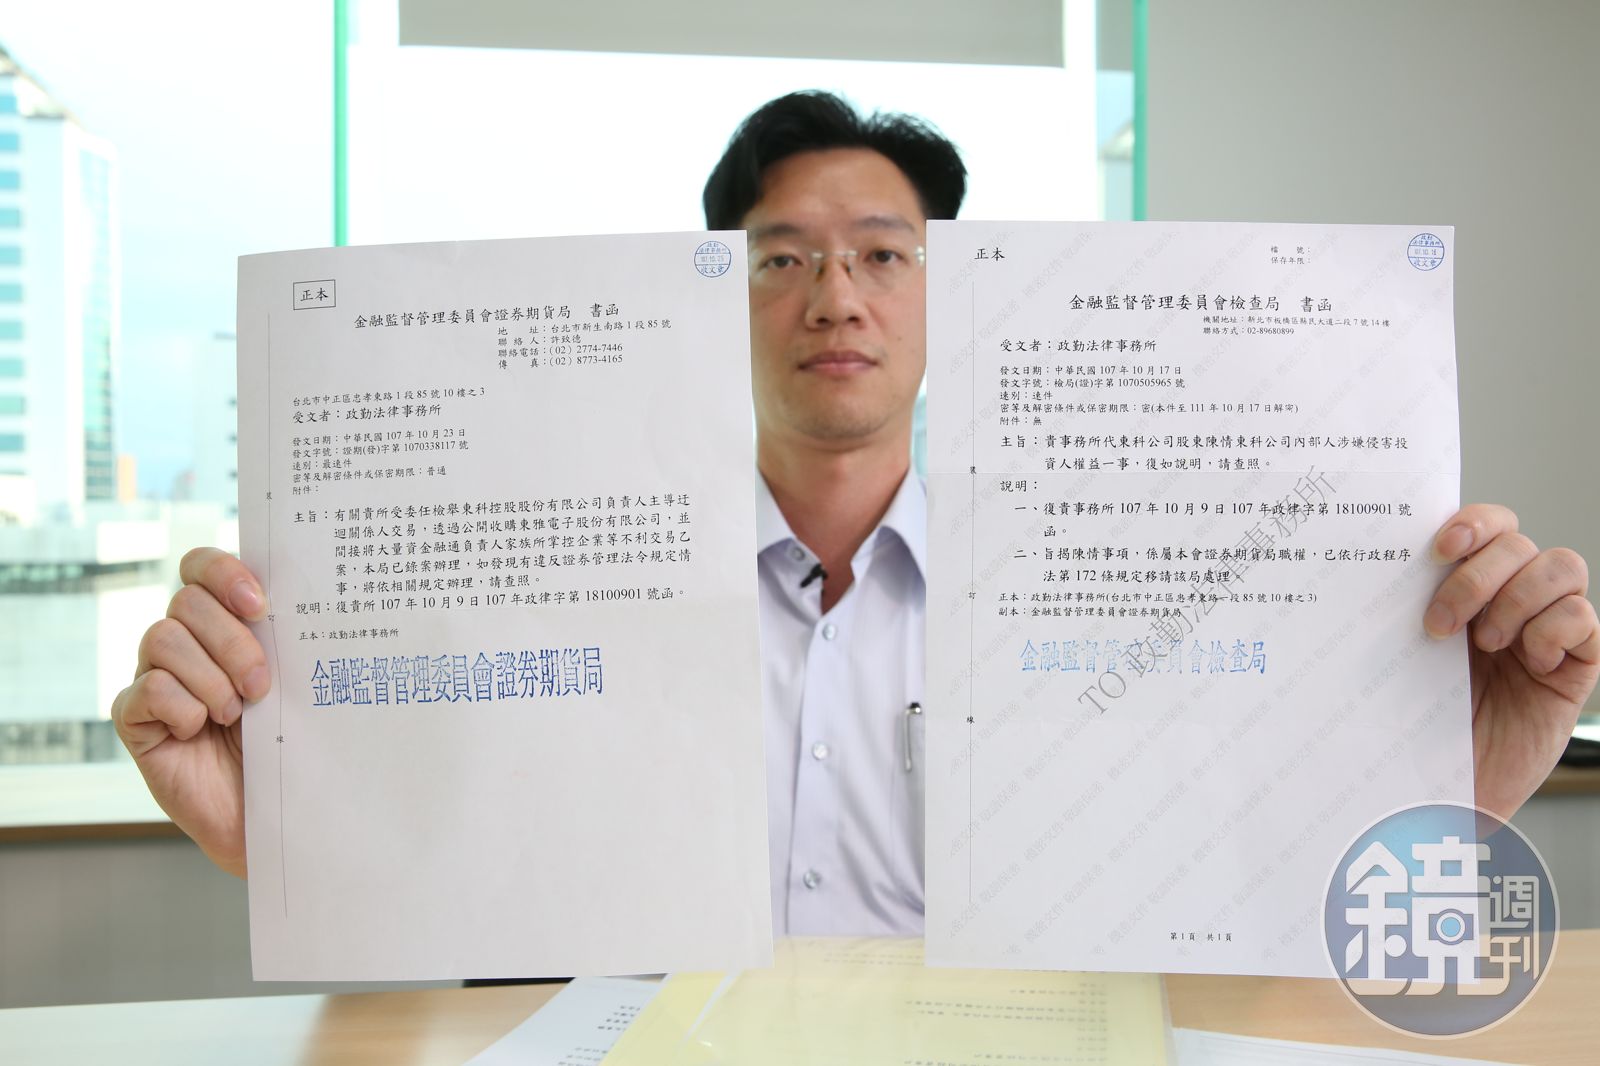 正本
政勤
法律事務所
107.10.23
收文章
金融監督管理委員會證券期貨局　書函
地　　址：台北市新生南路1段85號
聯 絡 人：許致德
聯絡電話：(02) 2774-7446
傳　　真：(02) 8773-4165
台北市中正區忠孝東路1段85號10樓之3
受文者：政勤法律事務所
發文日期：中華民國107年10月23日
發文字號：證期(發)字第1070338117號
速別：最速件
密等及解密條件或保密期限：普通
附件：
主旨：有關貴所受委任檢舉東科控股股份有限公司負責人主導迂
迴關係人交易，透過公開收購東雅電子股份有限公司，並
間接將大量資金融通負責人家族所掌控企業等不利交易乙
案，本局已錄案辦理，如發現有違反證券管理法令規定情
事，將依相關規定辦理，請查照。
說明：復貴所107年10月9日107年政律字第18100901號函。
正本：政勤法律事務所
金融監督管理委員會證券期貨局
裝
訂
線
正本
檔　　號：
保存年限：
政勤
法律事務所
收文章
金融監督管理委員會檢查局　書函
機關地址：新北市板橋區縣民大道二段7號14樓
聯絡方式：02-89680899
受文者：政勤法律事務所
發文日期：中華民國107年10月17日
發文字號：檢局(證)字第1070505965號
速別：速件
密等及解密條件或保密期限：密(本件至111年10月17日解密)
附件：無
主旨：貴事務所代東科公司股東陳情東科公司內部人涉嫌侵害投
資人權益一事，復如說明，請查照。
說明：
一、復貴事務所107年10月9日107年政律字第18100901號
函。
二、旨揭陳情事項，係屬本會證券期貨局職權，已依行政程序
法第172條規定移請該局處理。
正本：政勤法律事務所(台北市中正區忠孝東路一段85號10樓之3)
副本：金融監督管理委員會證券期貨局
金融監督管理委員會檢查局
TO 政勤法律事務所
機密文件 敬請保密
裝
訂
線
第1頁　共1頁
鏡週刊